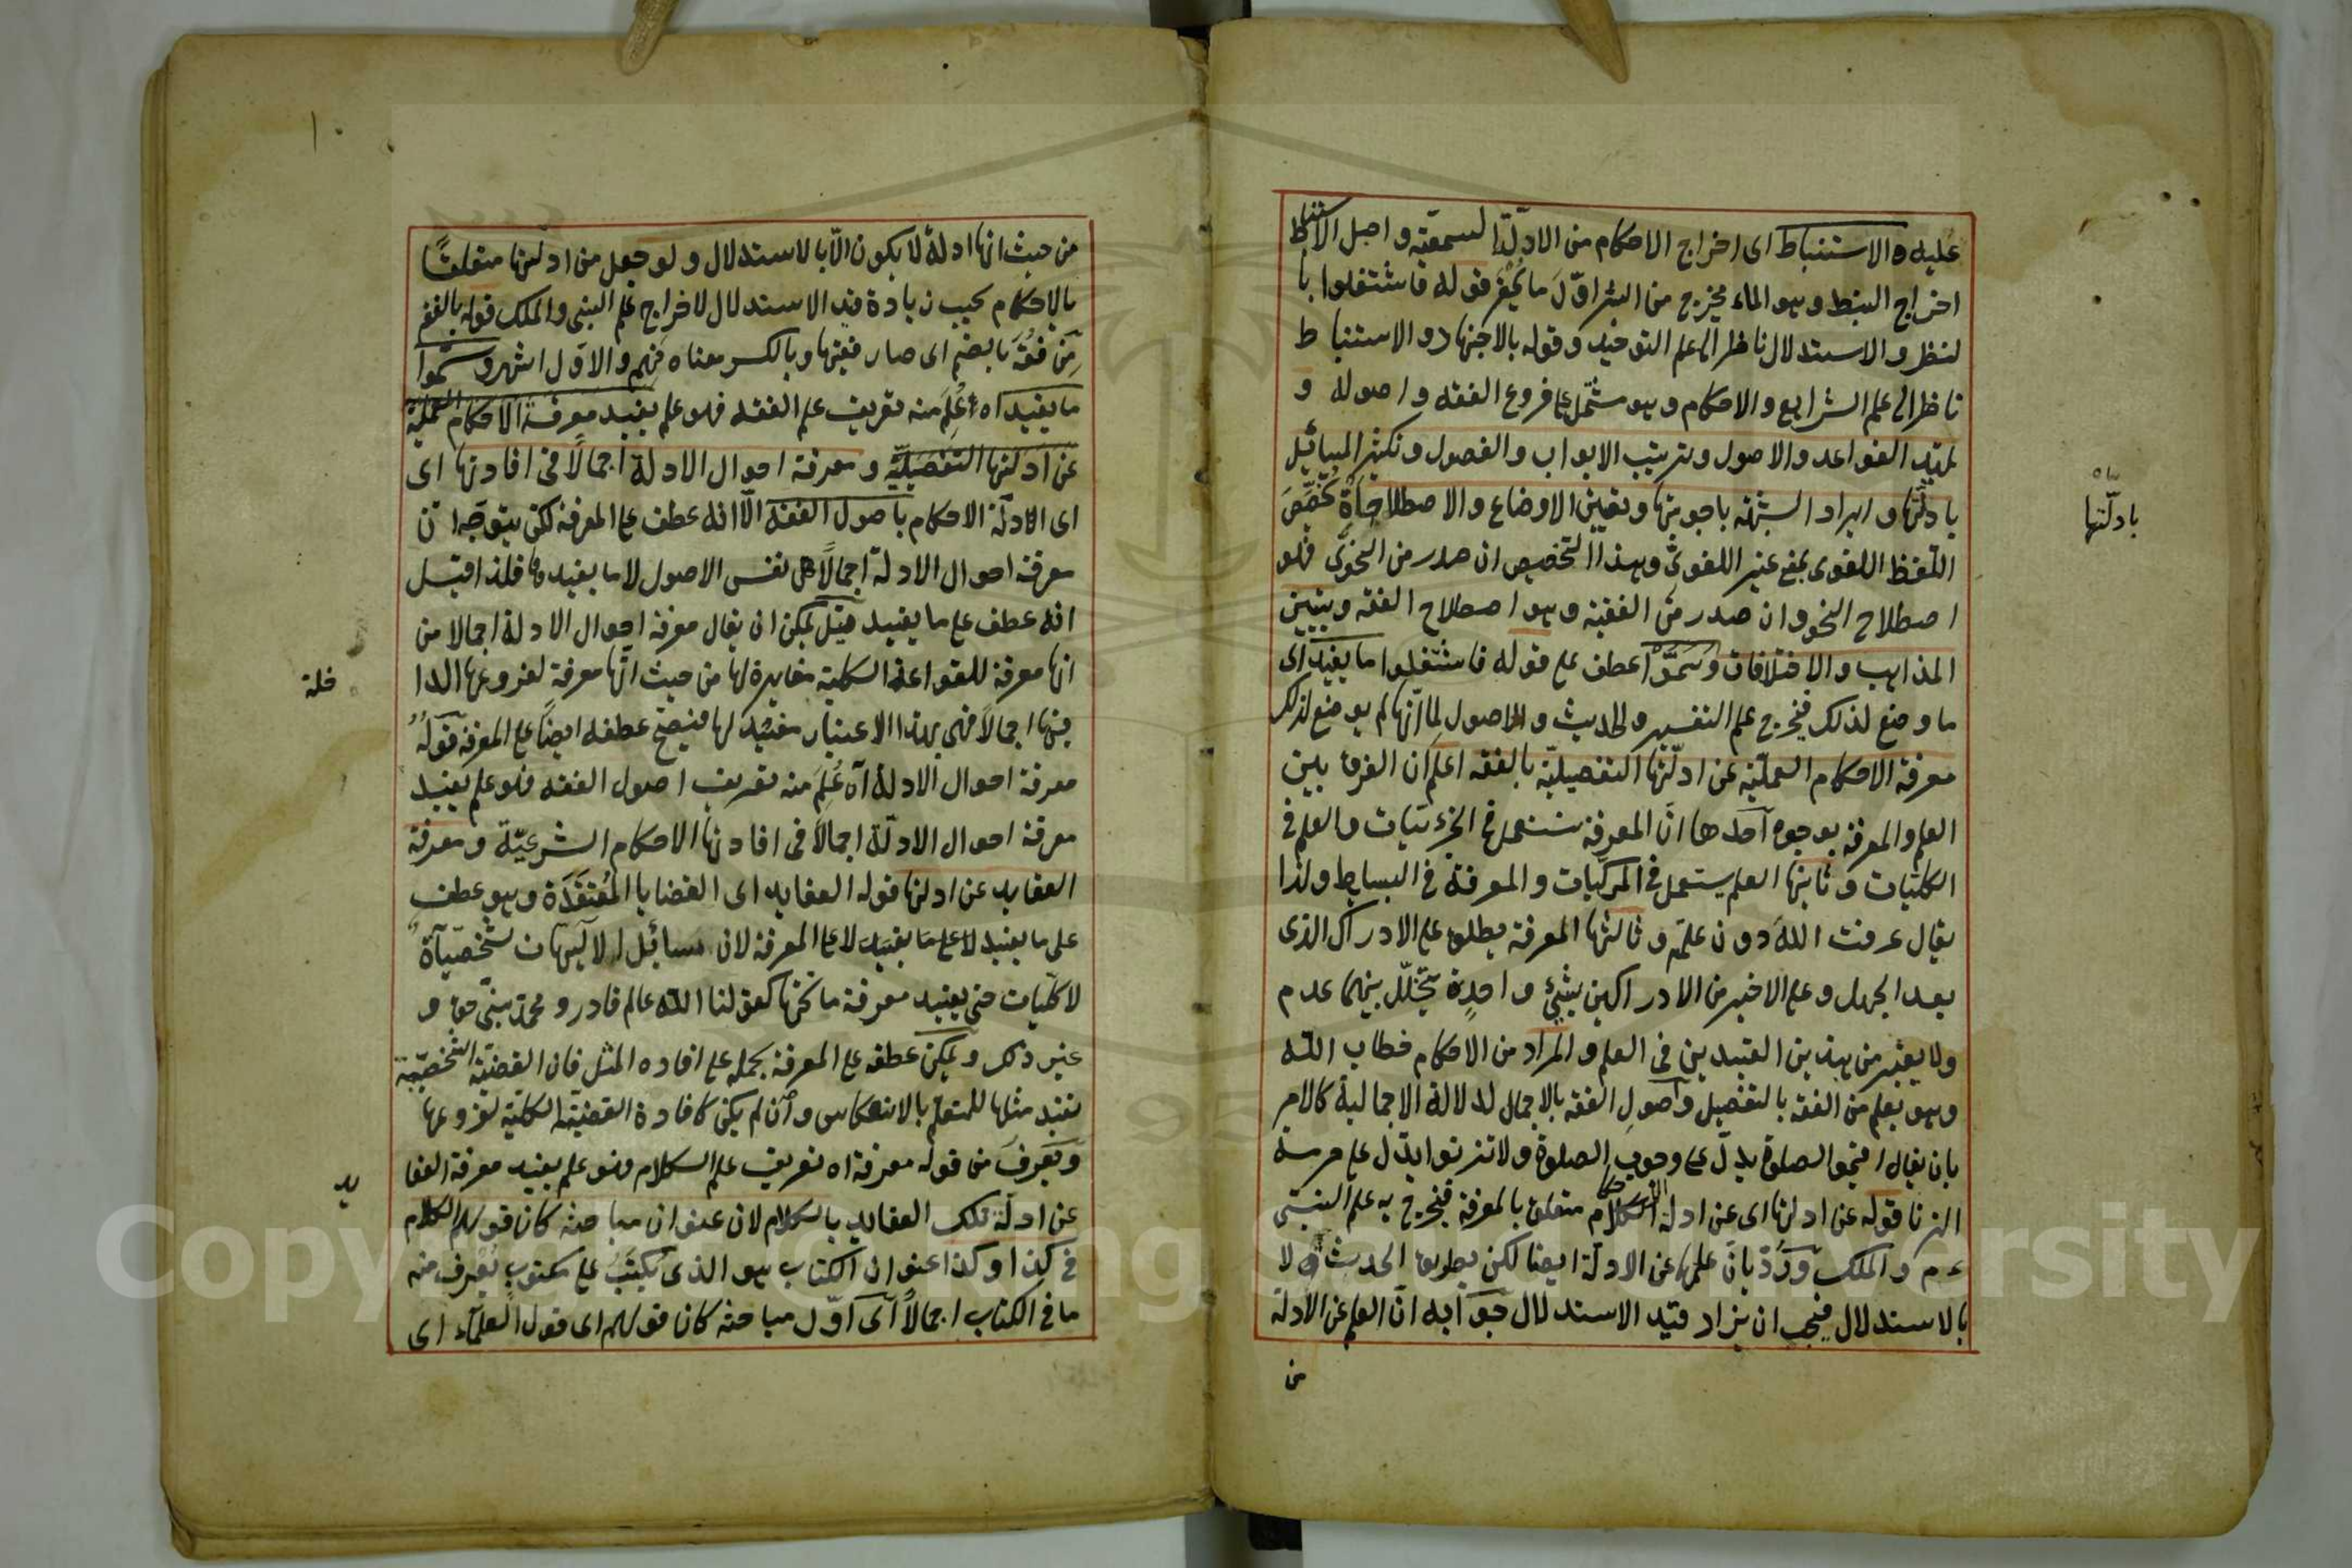 عليه والاستنباط اى اخراج الاحكام من الادلة السمعية واصل الاستنباط
اخراج النبط وهو الماء يخرج من البئر اوّل ما يحفر قوله فاشتغلوا با
لنظر والاستدلال ناظر الى علم التوحيد وقوله بالاجتهاد والاستنباط
ناظر الى علم الشرايع والاحكام وهو مشتمل على فروع الفقه واصوله و
تمهيد القواعد والاصول وترتيب الابواب والفصول وتكثير المسائيل
بادلّتها وايراد الشبهة باجوبتها وتعيين الاوضاع والاصطلاحاة تخصّص
اللّفظ اللغوى بمع غير اللغوىّ وهذا التخصيص ان صدر من النحوىّ فهو
اصطلاح النحو وان صدر من الفقيه وهو اصطلاح الفقه وتبيين
المذاهب والاختلافات وسمّوا عطف على قوله فاشتغلوا ما يفيد اى
ما وضع لذلك فيخرج علم التفسير والحديث والاصول لما انّها لم يوضع لذلك
معرفة الاحكام العمليّة عن ادلّتها التفصيليّة بالفقه اعلم ان الفرق بين
العلم والمعرفة بوجوه احدها انّ المعرفة تستعمل فى الجزئيات والعلم فى
الكلّيات وثانيها العلم يستعمل فى المركبات والمعرفة فى البسايط ولذا
يقال عرفت اللّه دون علمته وثالثها المعرفة يطلق على الادراك الذى
بعد الجهل وعلى الاخير من الادراكين بشيئ واحدٍ يتخلّل بينهما عدم
ولا يعتبر من هذين القيدين فى العلم والمراد من الاحكام خطاب اللّه
وهو يعلم من الفقه بالتفصيل واصول الفقه بالاجمال لدلالة الاجمالية كالامر
بان يقال اقيموا الصلوة يدلّ على وجوب الصلوة ولا تزنوا يدّل على حرمة
الزنا قوله عن ادلتها اى عن ادلة الاحكام متعلق بالمعرفة فيخرج به علم النبىّ
ء م والملك وردّ بانّ علمها عن الادلّة ايضا لكن بطريق الحدث لا
بالاستدلال فيجب ان يزاد قيد الاستدلال جوابه انّ العلم عن الادلة
من
بادلّتها
من حيث انها ادلة لا يكون الّا بالاستدلال ولو جعل من ادلتها متعلقًا
بالاحكام يجب زيادة قيد الاستدلال لاخراج علم النبى والملك قوله بالفقه
مِن فقُه بالضم اى صار فقيها وبالكسر معناه فهم والاوّل اشهر وسمّوا
ما يفيد اه عُلِم منه تعريف علم الفقه فهو علم يفيد معرفة الاحكام العمليّة
عن ادلتها التفصيليّة ومعرفة احوال الادلة اجمالًا فى افادتها اى
اى الادلّة الاحكام باصول الفقه الّا انه عطف على المعرفة لكن يتوجّه ان
معرفة احوال الادلة اجمالًا هى نفس الاصول لا ما يفيدها فلذا قيل
انه عطف على ما يفيد قيل يمكن ان يقال معرفة احوال الادلة اجمالا من
انها معرفة للقواعد الكلية مغايرة لها من حيث انّها معرفة لفروعها الدا
خلة
فيها اجمالًا فهى بهذا الاعتبار مفيد لها فيصحّ عطفه ايضًا على المعرفة قوله
معرفة احوال الادلة آه عُلِمَ منه تعريف اصول الفقه فهو علم يفيد
معرفة احوال الادلّة اجمالًا فى افادتها الاحكام الشرعيّة ومعرفة
العقايد عن ادلتها قوله العقايد اى القضايا المُعتَقَدَة وهو عطف
على ما يفيد لا على المعرفة لان مسائيل الالهيات شخصيآة
لا كلّيات حتى يفيد معرفة ما تحتها كقولنا اللّه عالم قادر ومحمّد نبىّ حق و
غير ذلك ويمكن عطفه على المعرفة بحمله على افاده المثل فان القضيّة الشخصيّة
تفيد مثلها للمتعلم بالانعكاس وان لم يكن كافادة القضيّة الكلّية لفروعها
وتَعرِفَ من قوله معرفة اه تعريف علم الكلام فهو علم يفيد معرفة العقا
يد
عن ادلّة تلك العقايد بالكلام لان عنوان مباحثه كان قولهم الكلام
فى كذا وكذا عنوان الكتاب هو الذى يكتب على مكتوب يعرف منه
ما فى الكتاب اجمالًا اى اوّل مباحثه كان قولهم اى قول العلمآء اى
Copyright © King Saud University
1957